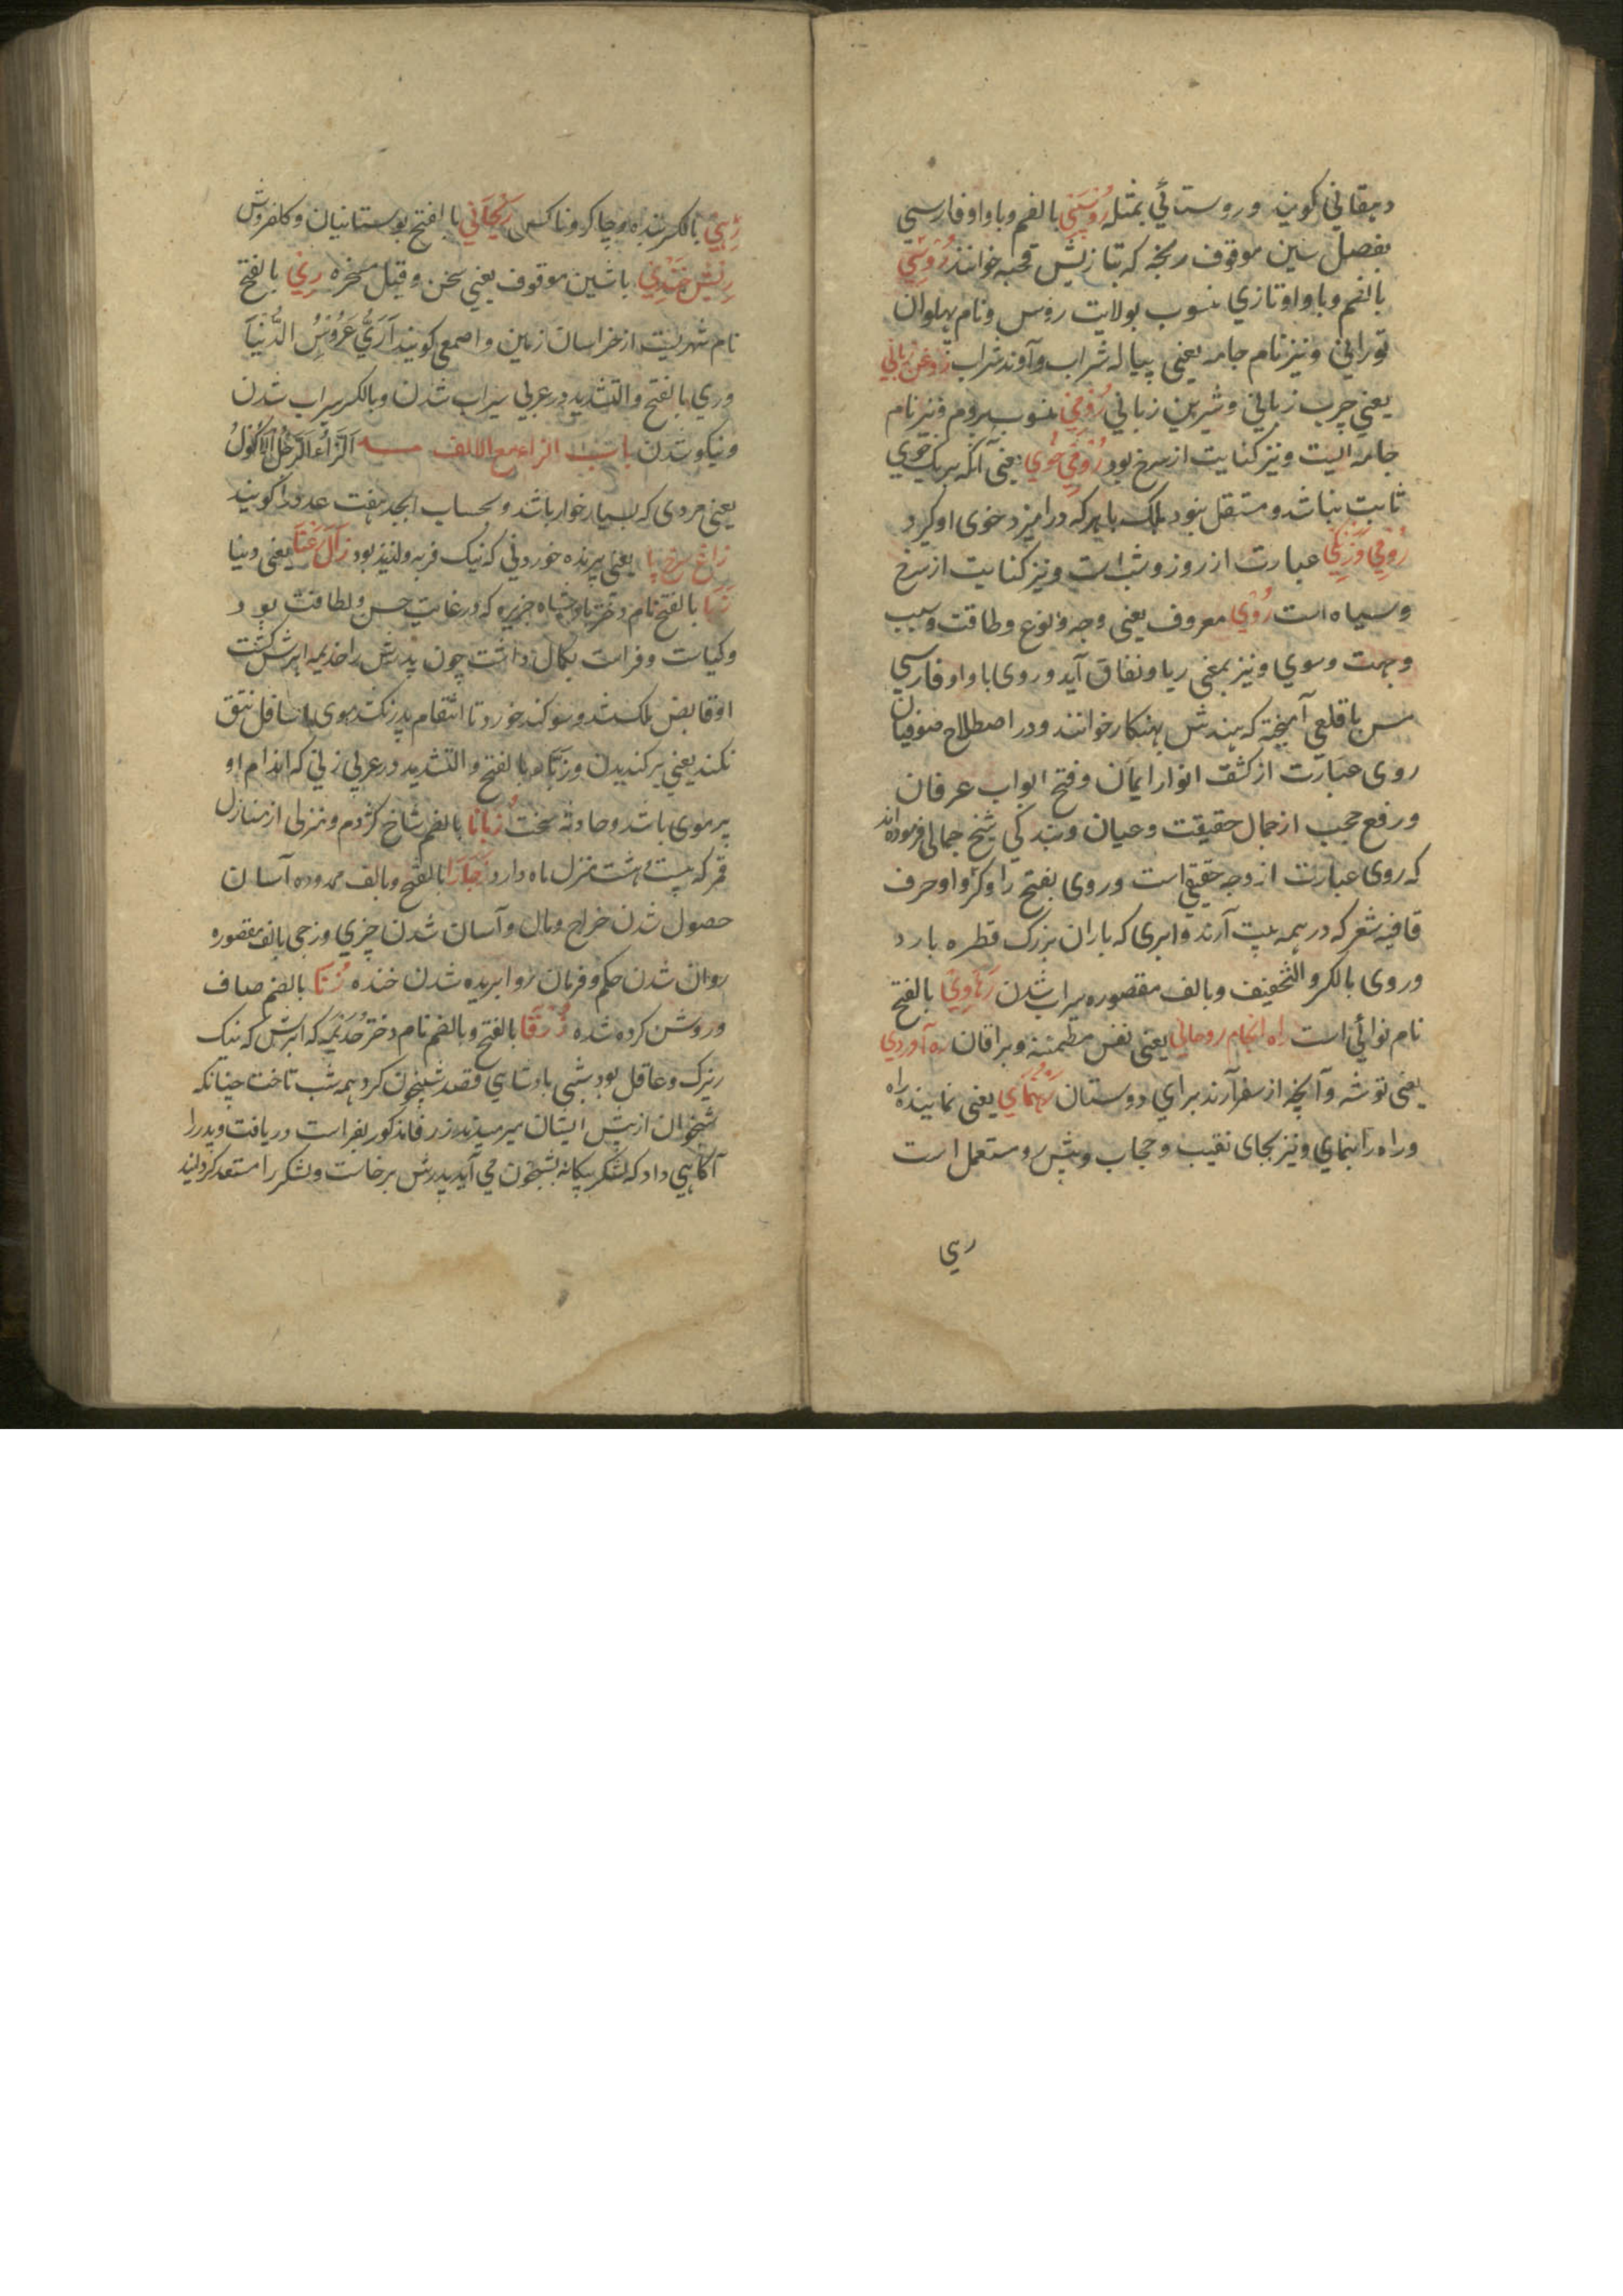 دهقاني كويند وروستائي بمثله رُوسپي بالضم وباواو فارسي
بفصل سين موقوف ريخه كه بتازيش قحبه خوانند رُوسِي
بالضم وباواو تازي منسوب بولايت روس ونام پهلوان
توراني ونيز نام جامه يعني پياله شراب وآوند شراب روغن زباني
يعني چرب زباني وشيرين زباني رُومي منسوب بروم ونيز نام
جامه ايست ونيز كنايت از سرخ بود رُومي خُوي يعني آنكه بريك خوي
ثابت نباشد ومستقل نبود بلك باهر كه درآميزد خوى او كيرد
رُومي وزَنكي عبارت از روز وشب است ونيز كنايت از سرخ
وسياه است رُوي معروف يعني وجه ونوع وطاقت وسبب
وجهت وسوي ونيز بمعني ريا ونفاق آيد وروى باواو فارسي
مس باقلعي آميخته كه هندش بهنكار خوانند ودر اصطلاح صوفيان
روى عبارت از كشف انوار ايمان وفتح ابواب عرفان
ورفع حجب از جمال حقيقت وعيان وبندكي شيخ جمالى فرموده‌اند
كه روى عبارت از وجه حقيقي است وروى بفتح را وكسر واو حرف
قافيه شعر كه در همه بيت آرند وابرى كه باران بزرك قطره بارد
وروى بالكسر والتخفيف وبالف مقصوره سيراب شدن رَهاوِي بالفتح
نام نوائي است راه انجام روحاني يعني نفس مطمئنه وبراقان ره آوردي
يعني توشه وآنچه از سفر آرند براي دوستان رَهنُماي يعني نماينده راه
وراه را بنماي ونيز بجاى نقيب وحجاب وپيش رو مستعمل است
رهي
رَهِي بالكسر بنده وچاكر وناكس رَيْحَاني بالفتح بوستانيان وكلفروش
رِيْش خَنْدِي باشين موقوف يعني سخن وقيل مسخره رِي بالفتح
نام شهريست از خراسان زمين واصمعي كويند اَرَيُّ عَرُوْسُ الدُّنْيَا
ورى بالفتح والتشديد در عربي سيراب شدن وبالكسر سيراب شدن
ونيكو شدن باب الزاء مع الالف اَلزَّاءُ الرَّجُلُ الْاَكُوْلُ
يعني مردى كه بسيار خوار باشد وبحساب ابجد هفت عدد را كويند
زاغ سرخ پا يعني پرنده خوردني كه نيك فربه ولذيذ بود زَالِ رَعْنَا يعني دنيا
زَبَا بالفتح نام دختر بادشاه جزيره كه در غايت حسن ولطافت بود
وكياست وفراست بكمال داشت چون پدرش را خذيمه ابرش كشت
او قابض ملك شد وسوكند خورد تا انتقام پدر نكشد موى اسافل نتق
نكند يعني بركنديدن وزباء بالفتح والتشديد در عربي زني كه اندام او
پرموى باشد وحادثه سخت زُبانا بالضم شاخ كژدم ومنزلى از منازل
قمر كه بيست وهشت منزل ماه دارد زَجَا بالفتح وبالف ممدوده آسان
حصول شدن خراج ومال وآسان شدن چيزي وزجى بالف مقصوره
روان شدن حكم وفرمان روا بريده شدن خنده زُرنا بالضم صاف
وروشن كرده شده زُرَقَا بالفتح وبالضم نام دختر خُذَيمَه كه ابرش كه نيك
زيرك وعاقل بود شبي بادشاهي قصد شبيخون كرد همه شب تاخت چنانكه
آكاهي داد كه لشكر بيكانه بشبخون مي آيد پدرش برخاست ولشكر را مستعد كردانيد